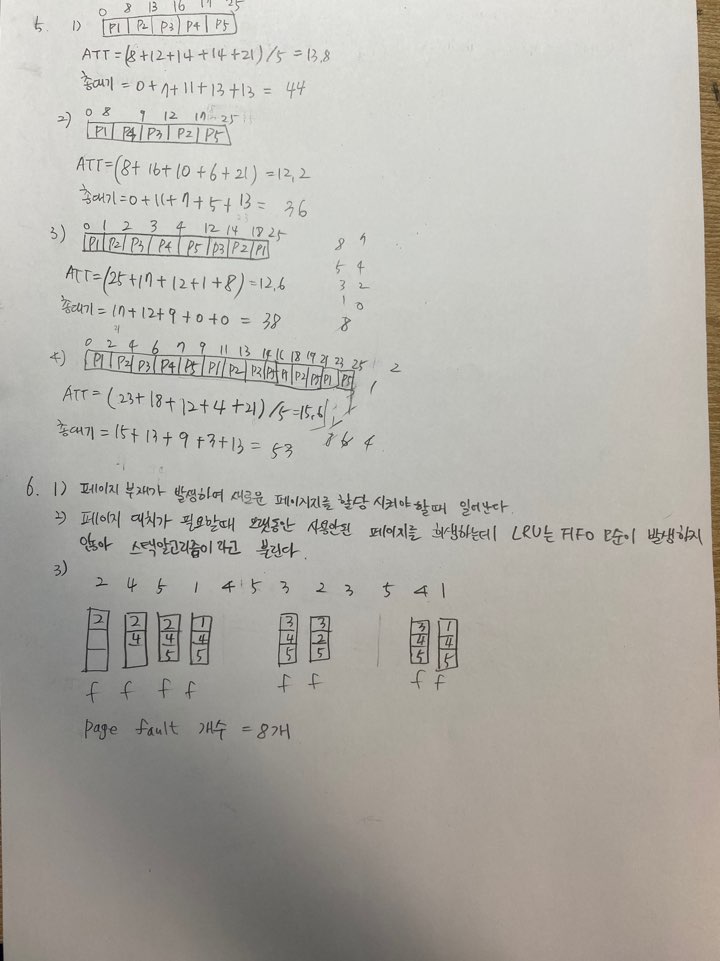 0 8 13 16 17 25
5. 1) P1 P2 P3 P4 P5
ATT=(8+12+14+14+21)/5=13,8
총대기=0+7+11+13+13= 44
0 8 9 12 17 25
2) P1 P4 P3 P2 P5
ATT=(8+16+10+6+21)=12,2
총대기=0+11+7+5+13= 36
0 1 2 3 4 12 14 18 25
3) P1 P2 P3 P4 P5 P3 P2 P1
8 7
ATT=(25+17+12+1+8)=12,6
5 4
3 2
1 0
총대기=17+12+9+0+0=38
8
0 2 4 6 7 9 11 13 14 16 18 19 21 23 25
2
4) P1 P2 P3 P4 P5 P1 P2 P3 P5 P1 P2 P5 P1 P5
1
ATT=(23+18+12+4+21)/5=15,6
8 6 4
총대기=15+13+9+3+13=53
6. 1) 페이지 부재가 발생하여 새로운 페이지지를 할당 시켜야 할때 일어난다.
2) 페이지 대치가 필요할때 오랫동안 사용안된 페이지를 희생하는데 LRU는 FIFO 모순이 발생하지
않아 스택알고리즘이라고 불린다.
3)
2 4 5 1 4 5 3 2 3 5 4 1
2 2 2 1 3 3 3 1
4 4 4 4 2 4 4
5 5 5 5 5 5
f f f f f f f f
page fault 개수 = 8개